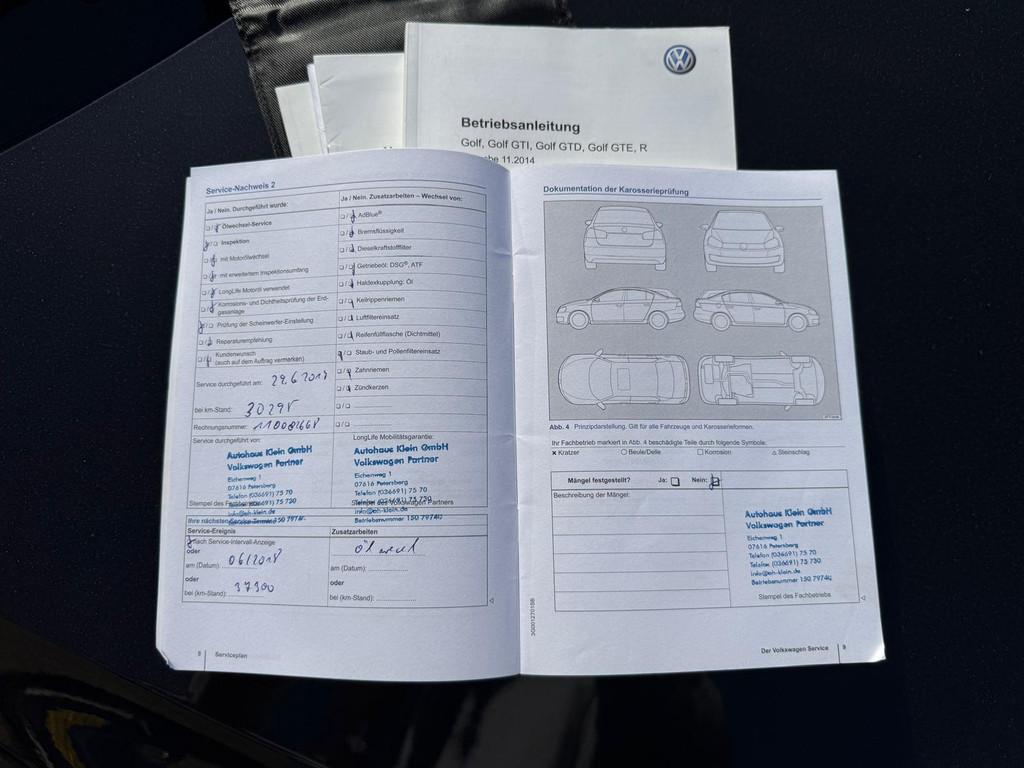 Betriebsanleitung
Golf, Golf GTI, Golf GTD, Golf GTE, R
be 11.2014
Service-Nachweis 2
Ja / Nein. Durchgeführt wurde:
Ölwechsel-Service
Inspektion
mit Motorölwechsel
mit erweitertem Inspektionsumfang
LongLife Motoröl verwendet
Korrosions- und Dichtheitsprüfung der Erd-
gasanlage
Prüfung der Scheinwerfer-Einstellung
Reparaturempfehlung
Kundenwunsch
(auch auf dem Auftrag vermerken)
Service durchgeführt am:
bei km-Stand:
Rechnungsnummer:
Service durchgeführt von:
Autohaus Klein GmbH
Volkswagen Partner
Eichenweg 1
07616 Petersberg
Telefon (036691) 75 70
Telefax (036691) 75 730
Ja / Nein. Zusatzarbeiten – Wechsel von:
AdBlue®
Bremsflüssigkeit
Dieselkraftstofffilter
Getriebeöl: DSG®, ATF
Haldexkupplung: Öl
Keilrippenriemen
Luftfiltereinsatz
Reifenfüllflasche (Dichtmittel)
Staub- und Pollenfiltereinsatz
Zahnriemen
Zündkerzen
LongLife Mobilitätsgarantie:
Autohaus Klein GmbH
Volkswagen Partner
Eichenweg 1
07616 Petersberg
Telefon (036691) 75 70
info@ah-klein.de
Betriebsnummer 150 79740
Service-Ereignis
nach Service-Intervall-Anzeige
oder
am (Datum): 06/2018
oder
bei (km-Stand): 37300
Zusatzarbeiten
am (Datum):
oder
bei (km-Stand):
8 Serviceplan
Dokumentation der Karosserieprüfung
Abb. 4 Prinzipdarstellung. Gilt für alle Fahrzeuge und Karosserieformen.
Ihr Fachbetrieb markiert in Abb. 4 beschädigte Teile durch folgende Symbole:
× Kratzer ○ Beule/Delle □ Korrosion △ Steinschlag
Mängel festgestellt? Ja: Nein:
Beschreibung der Mängel:
Autohaus Klein GmbH
Volkswagen Partner
Eichenweg 1
07616 Petersberg
Telefon (036691) 75 70
Telefax (036691) 75 730
info@ah-klein.de
Betriebsnummer 150 79740
Stempel des Fachbetriebs
3G0012701SB
Der Volkswagen Service 9